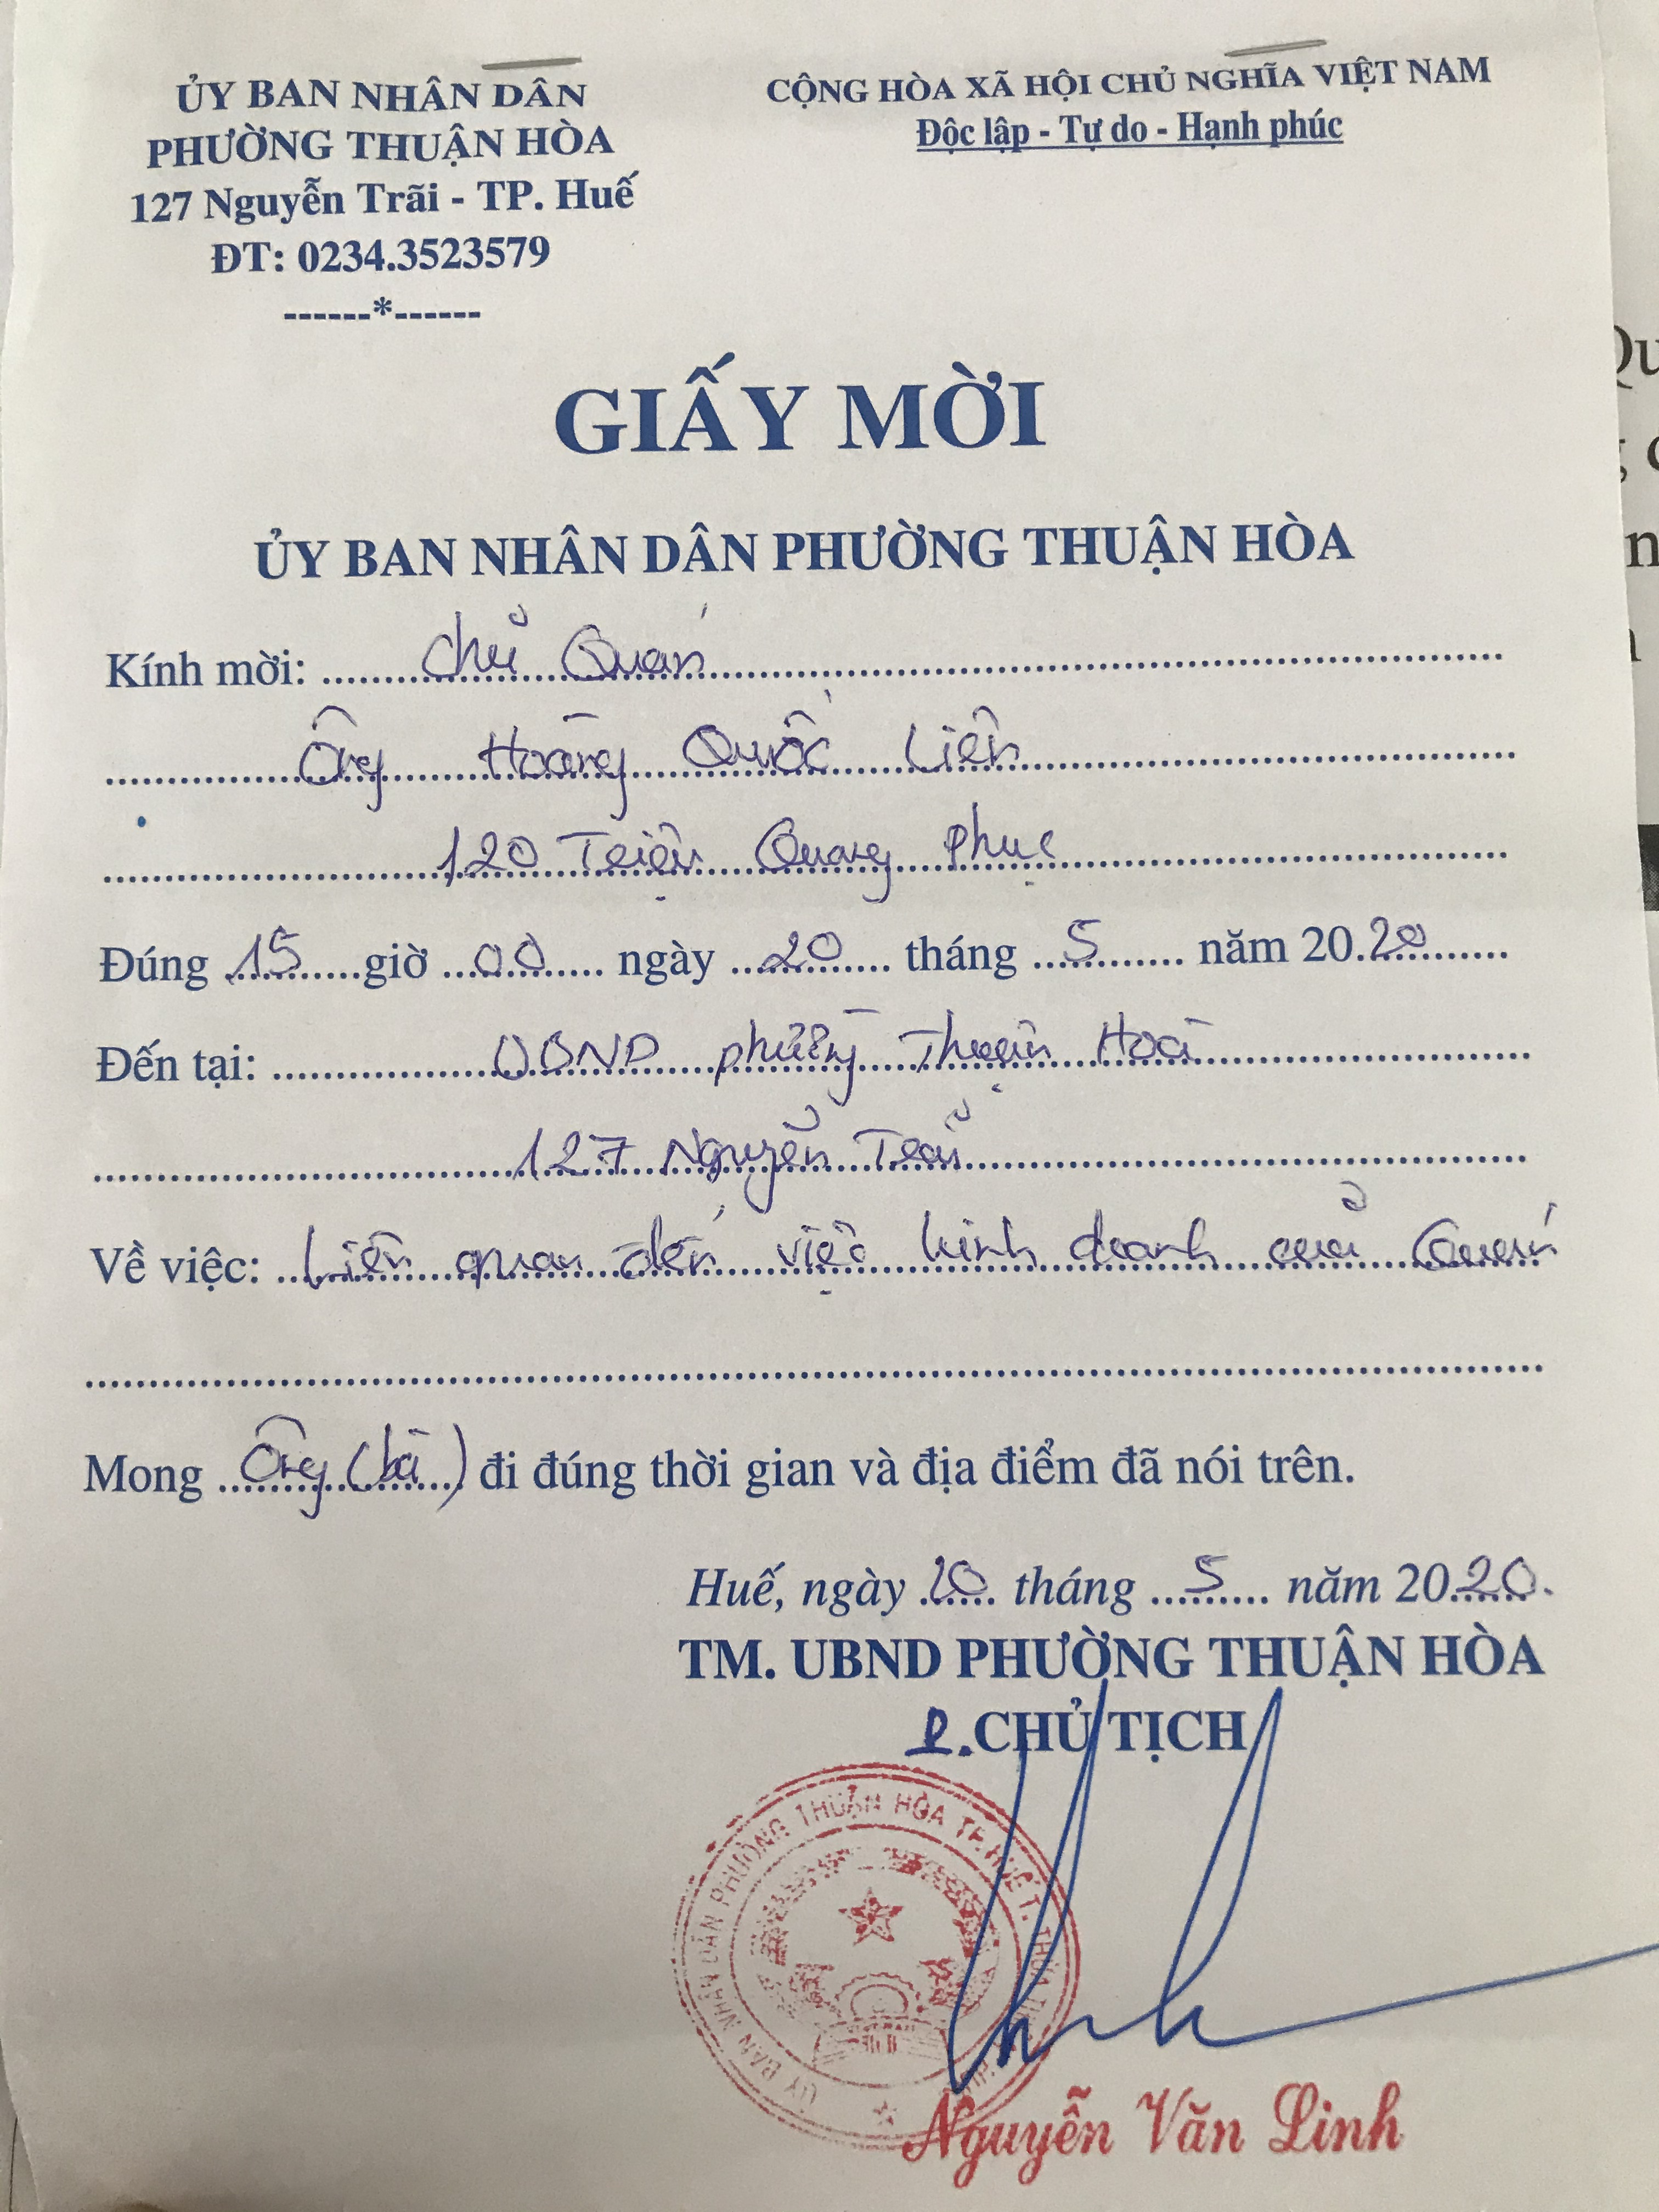 ỦY BAN NHÂN DÂN
PHƯỜNG THUẬN HÒA
127 Nguyễn Trãi - TP. Huế
ĐT: 0234.3523579
------*------
CỘNG HÒA XÃ HỘI CHỦ NGHĨA VIỆT NAM
Độc lập - Tự do - Hạnh phúc
GIẤY MỜI
ỦY BAN NHÂN DÂN PHƯỜNG THUẬN HÒA
Kính mời: Chủ Quán
Ông Hoàng Quốc Liên
120 Triệu Quang Phục
Đúng 15 giờ 00 ngày 20 tháng 5 năm 2020
Đến tại: UBND phường Thuận Hoà
127 Nguyễn Trãi
Về việc: Liên quan đến việc kinh doanh của Quán
Mong Ông (bà) đi đúng thời gian và địa điểm đã nói trên.
Huế, ngày 20 tháng 5 năm 2020.
TM. UBND PHƯỜNG THUẬN HÒA
P.CHỦ TỊCH
ỦY BAN NHÂN DÂN PHƯỜNG THUẬN HÒA TP.HUẾ T. THỪA
Nguyễn Văn Linh